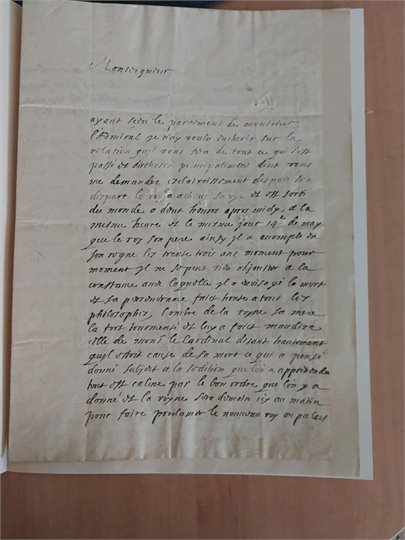 Monseigneur
ayant sceu le partement de monsieur
l'Admiral je n'ay voulu encherir sur la
relation qu'il vous fera de tout ce qui s'est
passé et principalement dont vous
me demandez esclaircissement depuis son
départ le roy a achevé sa vye et est sorti
du monde a deux heures apres midy, a la
mesme heure et le mesme jour 14e de may
que le roy son pere ainsy il a accomplis de
son regne les trente trois ans moment pour
moment il ne se peut rien adjouter a la
constance avec laquelle il a envisagé la mort
et sa perseverance faict honte a tous les
philosophes, l'ombre de la royne sa mere
la fort tourmenté et luy a faict maudire
celle de monsr le Cardinal disant hautement
qu'il estoit cause de sa mort ce qui a pensé
donné subject a la sedition que l'on a apprehendée
tout est calme par le bon ordre que l'on y a
donné et la royne sera demain icy au matin
pour faire proclamer le nouveau roy au palais